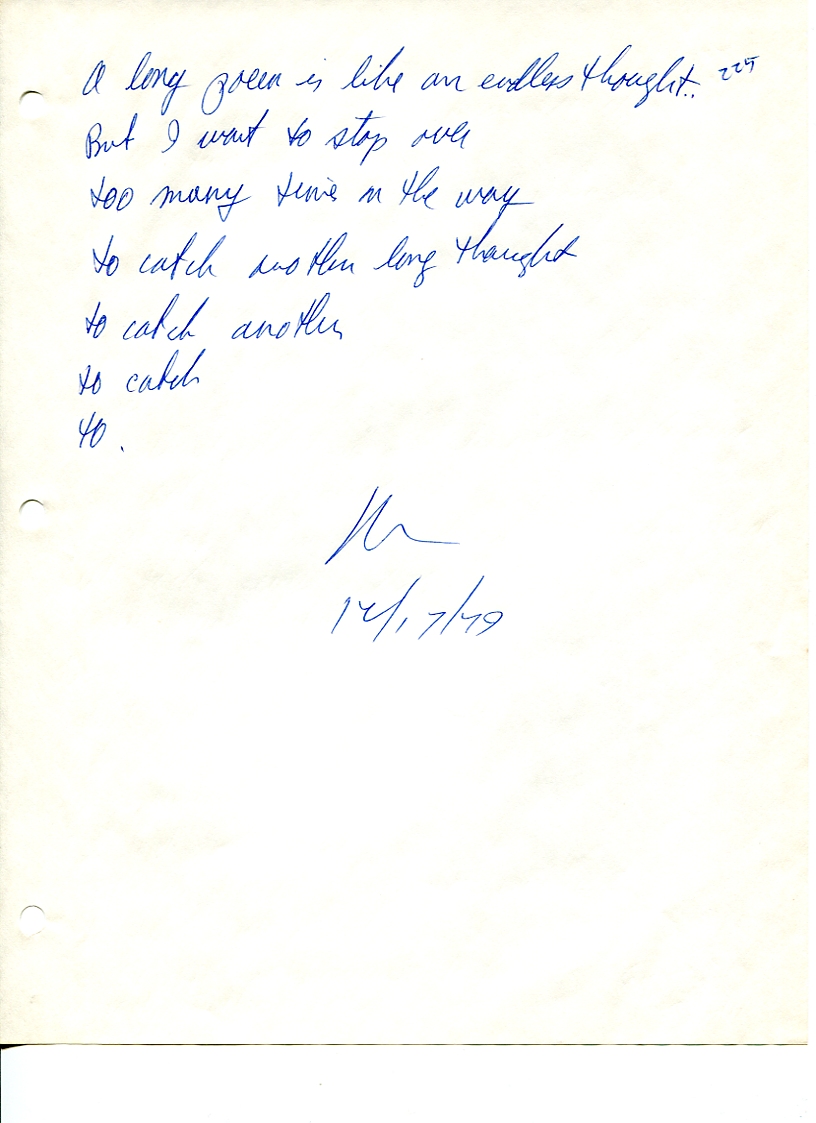 A long poem is like an endless thought. 225
But I want to stop over
too many times on the way
to catch another long thought
to catch another
to catch
to.
12/17/79